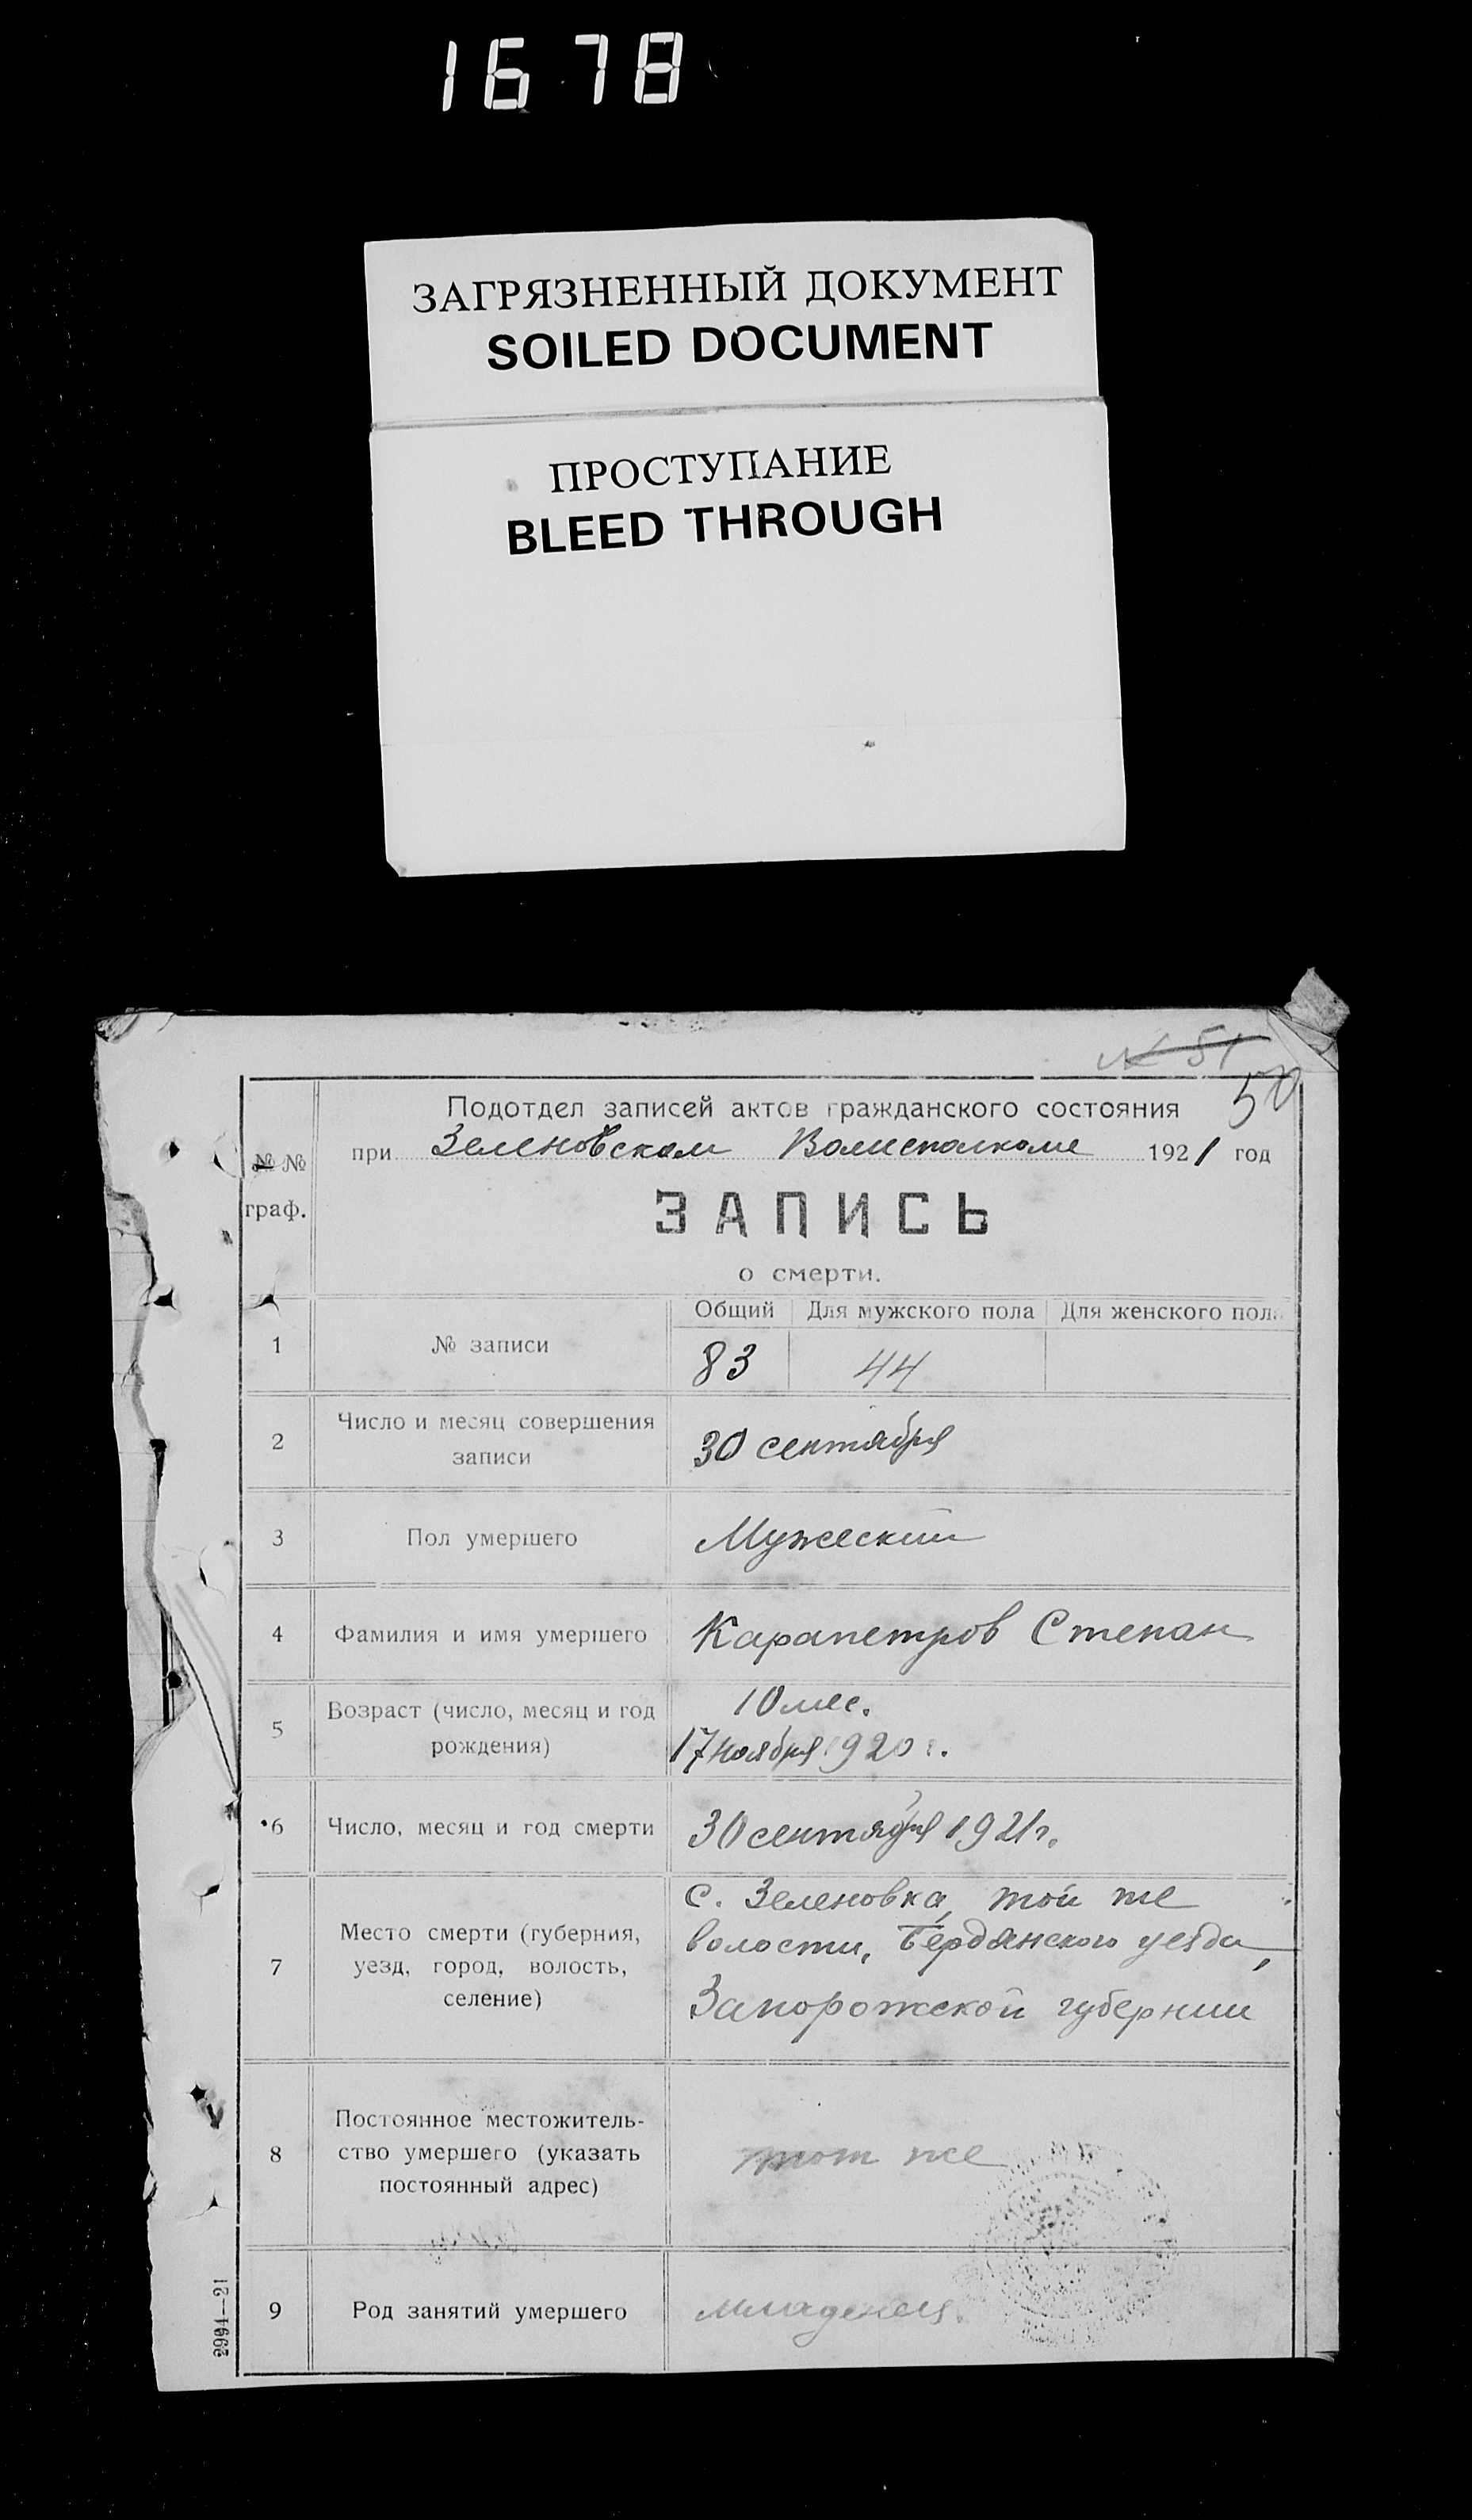 1678
ЗАГРЯЗНЕННЫЙ ДОКУМЕНТ
SOILED DOCUMENT
ПРОСТУПАНИЕ
BLEED THROUGH
№ 51
50
Подотдел записей актов гражданского состояния
при Зеленовском Волисполкоме 1921 год
№ №
граф.
ЗАПИСЬ
о смерти.
Общий Для мужского пола Для женского пола
1 № записи 83 44
2 Число и месяц совершения
записи
30 сентября
3 Пол умершего Мужеский
4 Фамилия и имя умершего Карапетров Степан
5 Возраст (число, месяц и год
рождения)
10 мес.
17 ноября 1920 г.
6 Число, месяц и год смерти 30 сентября 1921 г.
7 Место смерти (губерния,
уезд, город, волость,
селение)
с. Зеленовка, той же
волости, Бердянского уезда,
Запорожской губернии
8 Постоянное местожитель-
ство умершего (указать
постоянный адрес)
тот же
9 Род занятий умершего младенец.
2994—21